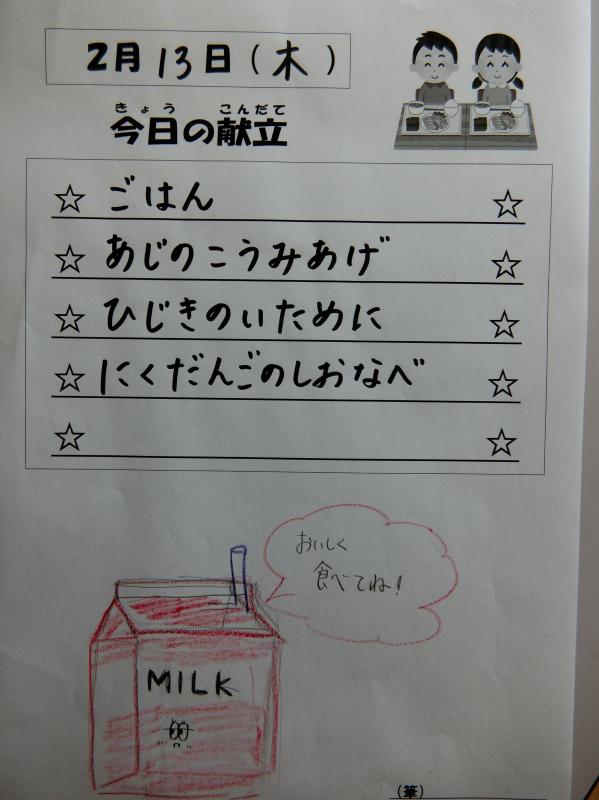 2月13日(木)
きょう こんだて
今日の献立
☆ ごはん ☆
☆ あじのこうみあげ ☆
☆ ひじきのいために ☆
☆ にくだんごのしおなべ ☆
☆ ☆
おいしく
食べてね!
MILK
(筆)